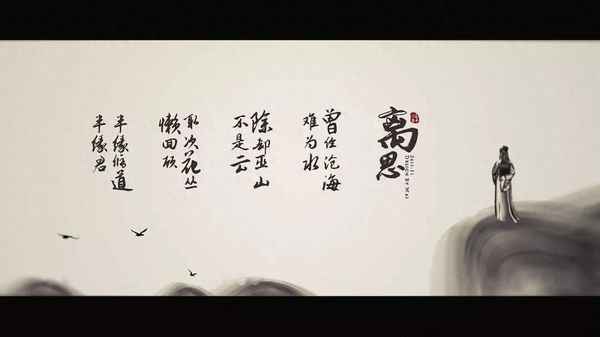 离思
曾经沧海
难为水
除却巫山
不是云
取次花丛
懒回顾
半缘修道
半缘君